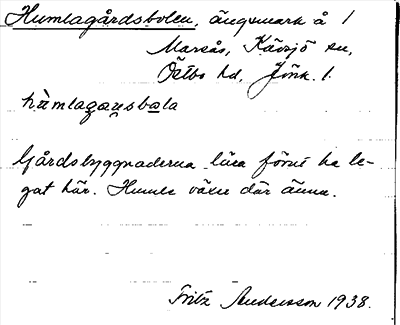 Humlagårdsbolen, ängsmark å 1
Marsås, Kävsjö sn,
Östbo hd, Jönk. l.
hùmlagaṇsbola
Gårdsbyggnaderna lära förut ha le-
gat här. Humle växer där ännu.
Fritz Andersson 1938.